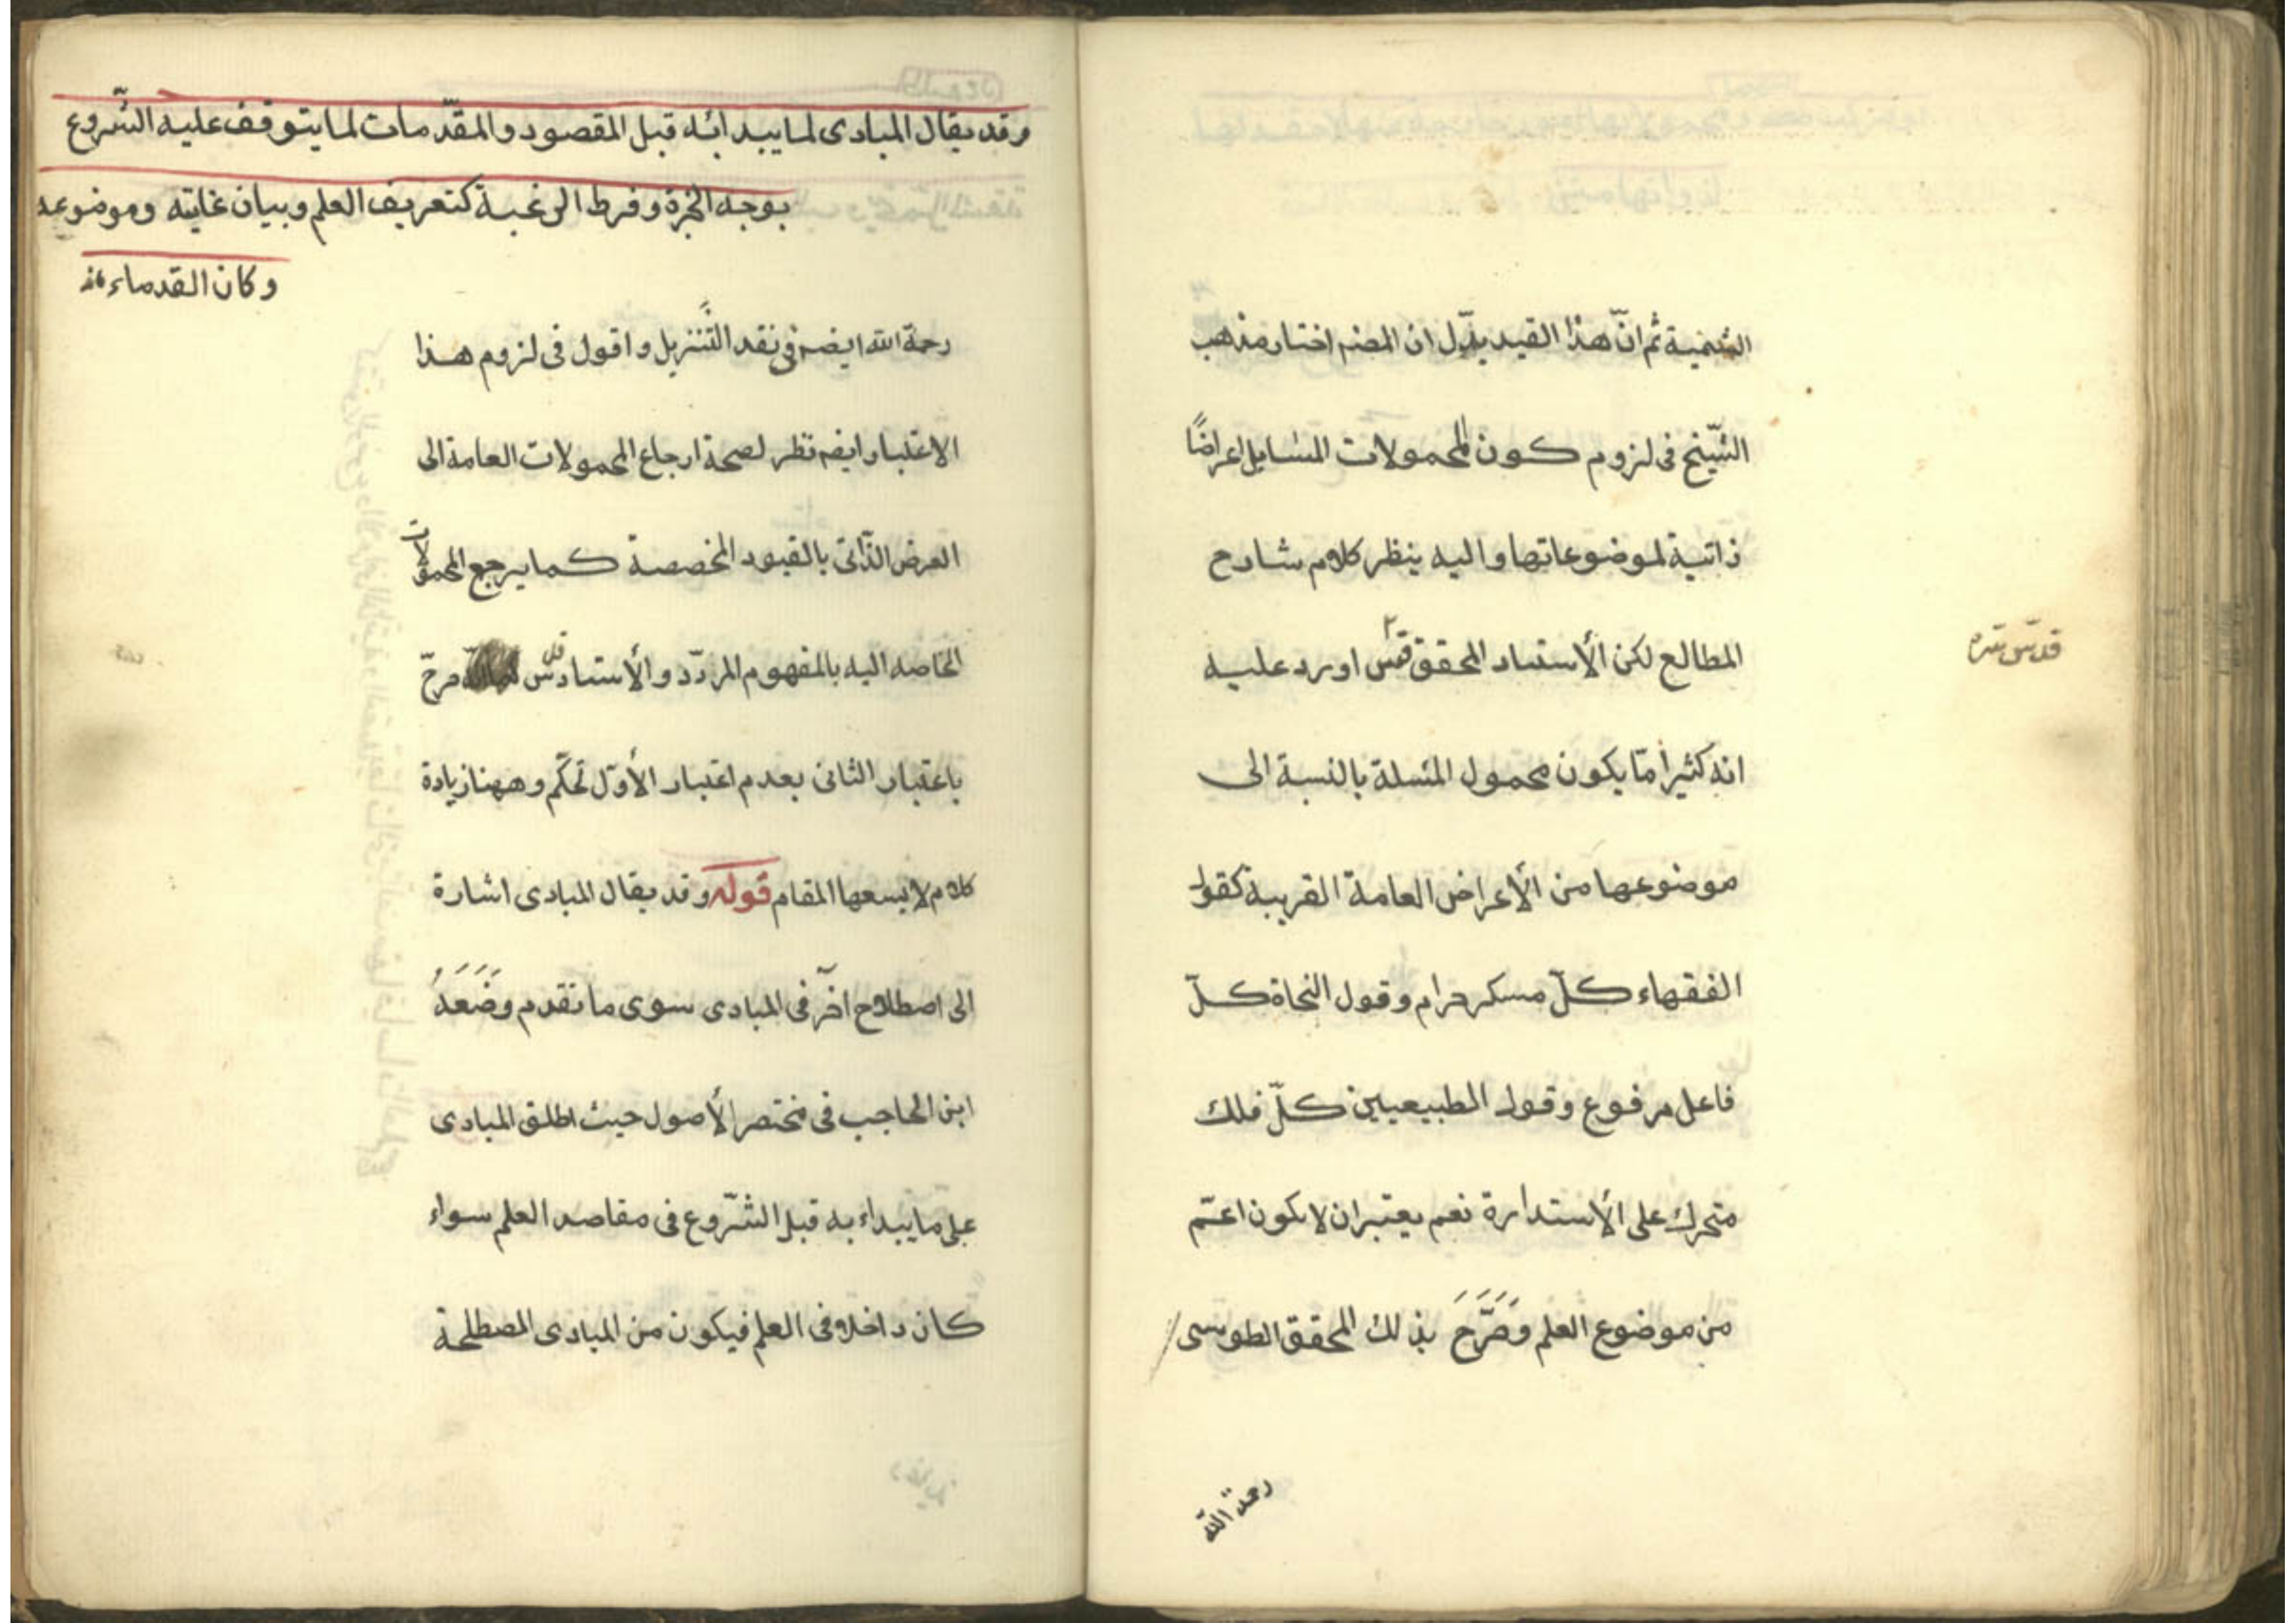 الشمسية ثم انّ هذا القيد يدّل ان المصنم اختار مذهب
الشّيخ فى لزوم كون المحمولات المسايل اعراضًا
ذاتية لموضوعاتها واليه ينظر كلام شارح
المطالع لكن الأستاد المحقق اورد عليه
قدّس سّره
انه كثيرا مّا يكون محمول المسئلة بالنسبة الى
موضوعها من الأعراض العامة القريبة كقول
الفقهاء كلّ مسكر حرام وقول النحاة كلّ
فاعل مرفوع وقول الطبيعيين كلّ فلك
متحرك على الأستدارة نعم يعتبر ان لا يكون اعمّ
من موضوع العلم وَصَرَّحَ بذلك المحقق الطوسى
رحمة الله
وقد يقال المبادى لما يبدائه قبل المقصود والمقدّمات لما يتوقف عليه الشّروع
بوجه الخبرة وفرط الرغبة كتعريف العلم وبيان غايته وموضوعه
وكان القدماء
رحمة الله ايضم فى نقد التّنزيل واقول فى لزوم هذا
الاعتبار ايضم نظر لصحة ارجاع المحمولات العامة الى
العرض الذّاتى بالقيود المخصصة كما يرجع المحمولات
الخاصه اليه بالمفهوم المردّد والأستاد صرحّ
باعتبار الثانى بعدم اعتبار الأوّل تحكّم وههنا زيادة
كلام لا يسعها المقام قوله وقد يقال المبادى اشارة
الى اصطلاح اخّر فى المبادى سوى ما تقدم وَضَعَهُ
ابن الحاجب فى مختصر الأصول حيث اطلق المبادى
على ما يبداء به قبل الشّروع فى مقاصد العلم سواء
كان داخلا فى العلم فيكون من المبادى المصطلحة